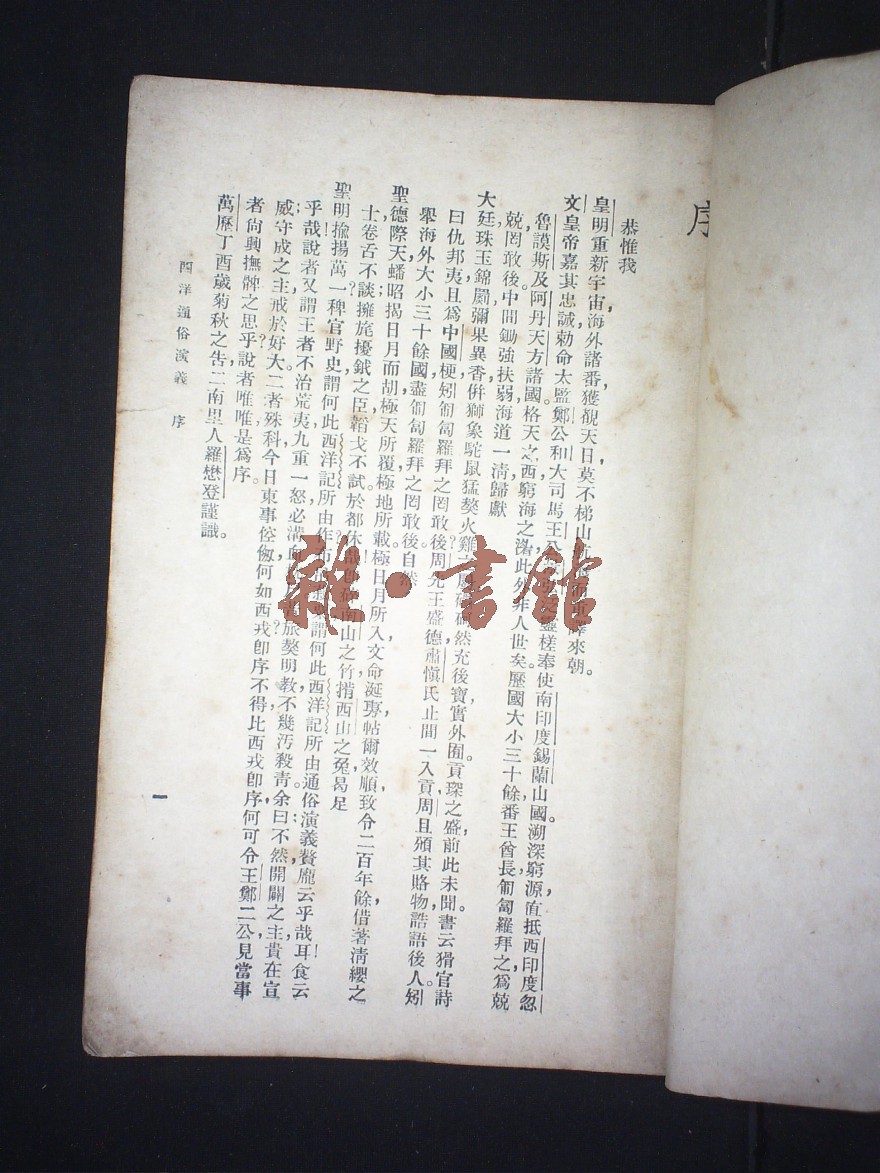 序
恭惟我
皇明重新宇宙，海外諸番獲覩天日，莫不梯山來朝。
文皇帝嘉其忠誠，勅命太監鄭公和、大司馬王槎奉使南印度錫蘭山國。溯深窮源，直抵西印度忽
魯謨斯及阿丹天方諸國。格天之西，窮海之濱，此外非人世矣。歷國大小三十餘，番王酋長，匍匐羅拜之爲兢
兢，罔敢後。中間鋤強扶弱，海道一清，歸獻
大廷。珠玉錦罽，彌果異香，倂獅象駝鼠猛獒火雞然充後寶，實外囿。貢琛之盛，前此未聞。書云猾官，詩
曰仇邦，夷且爲中國梗，矧匍匐羅拜之罔敢後。周先王盛德，肅愼氏止間一入貢，周且頒其賂物，誥語後人。矧
舉海外大小三十餘國，盡匍匐羅拜之罔敢後，自
聖德際天蟠，昭揭日月，而胡極天所覆，極地所載，極日月所入，文命誕專，帖爾效順，致令二百年餘，借著淸纓之
士，卷舌不談，擁旄擾鉞之臣，韜戈不試。於都休南山之竹，揹西山之兔，曷足
聖明揄揚萬一？稗官野史，謂何此西洋記所由作謂何此西洋記所由通俗演義贅龐云乎哉！耳食云
乎哉！說者又謂王者不治荒夷，九重一怒，必溝血旅獒明教，不幾汚殺靑。余曰：不然，開闢之主，貴在宣
威；守成之主，戒於好大。二者殊科，今日東事倥傯，何如西戎卽序；不得比西戎卽序，何可令王鄭二公見。當事
者尙興撫髀之思乎！說者唯唯，是爲序。
萬歷丁酉歲菊秋之吿，二南里人羅懋登謹識。
西洋通俗演義　序
一
雜·書館